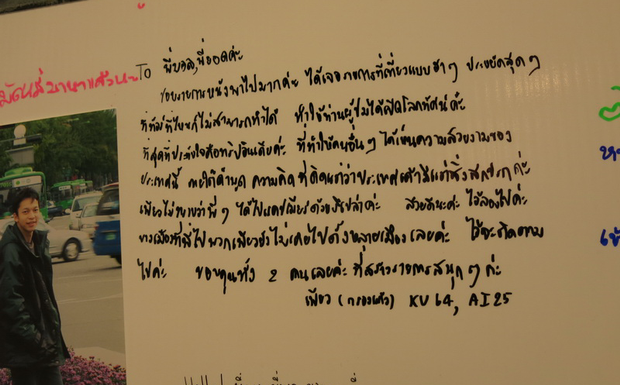 To พี่บอล, พี่ยอดค่ะ
ชอบรายการหนังพาไปมากค่ะ ได้เจอรายการที่เที่ยวแบบฮาๆ ประหยัดสุดๆ
ที่ที่ไหนก็ไม่สามารถทำได้ ทำให้ท่านผู้ชมได้เปิดโลกทัศน์ค่ะ
ที่สุดที่ประทับใจคือทริปอินเดียค่ะ ที่ทำให้คนอื่นๆ ได้เห็นความสวยงามของ
ประเทศนี้ ภายใต้คำพูด ความคิด ที่ติดแต่ว่าประเทศเค้ามีแต่สิ่งสกปรกค่ะ
เพียวไม่ทราบว่าพี่ๆ ได้ไปแคชเมียร์ด้วยรึเปล่าค่ะ สวยดีนะค่ะ ไว้ลองไปค่ะ
บางเมืองที่พี่ไป พวกเพียวยังไม่เคยไปตั้งหลายเมืองเลยค่ะ ไว้จะติดตาม
ไปค่ะ ขอบคุณทั้ง 2 คนเลยค่ะ ที่สร้างรายการสนุกๆ ค่ะ
เพียว (กรองแก้ว) KU 64, AI 25